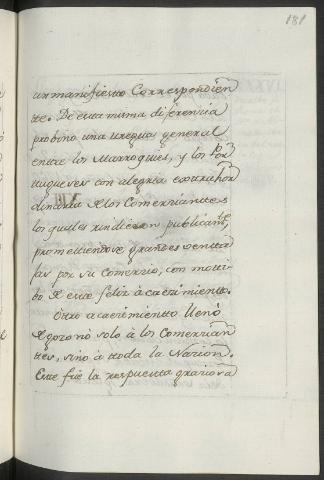 181
un manifiesto Correspondien
te. De esta misma diferencia
probino una tregua general
entre los Marroquies, y los Por
tugueses con alegria extrahor
dinaria de los Comerciantes
los quales rindieron publicamte,
prometiendose grandes ventu
ras por su Comerzio, con moti
bo de este feliz acaecimiento.
Otro acaecimiento llenó
de gozo nó solo á los Comercian
tes, sino á toda la Nacion.
Este fue la respuesta graciosa